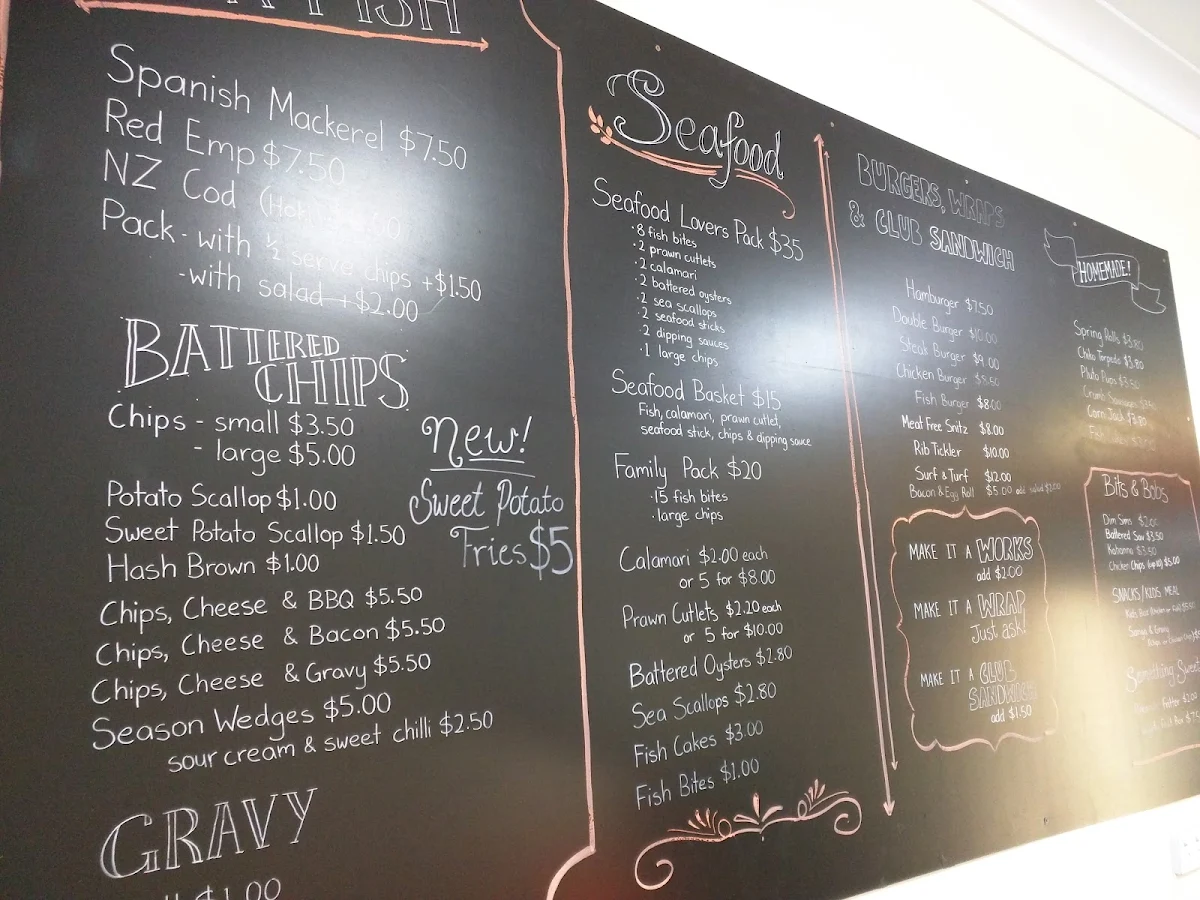 FISH
Spanish Mackerel $7.50
Red Emp $7.50
NZ Cod
Pack - with ½ serve chips +$1.50
- with salad +$2.00
BATTERED
CHIPS
Chips - small $3.50
- large $5.00
Potato Scallop $1.00
Sweet Potato Scallop $1.50
Hash Brown $1.00
Chips, Cheese & BBQ $5.50
Chips, Cheese & Bacon $5.50
Chips, Cheese & Gravy $5.50
Season Wedges $5.00
sour cream & sweet chilli $2.50
New!
Sweet Potato
Fries $5
GRAVY
$1.00
Seafood
Seafood Lovers Pack $35
· 8 fish bites
· 2 prawn cutlets
· 2 calamari
· 2 battered oysters
· 2 sea scallops
· 2 seafood sticks
· 2 dipping sauces
· 1 large chips
Seafood Basket $15
Fish, calamari, prawn cutlet,
seafood stick, chips & dipping sauce
Family Pack $20
· 15 fish bites
· large chips
Calamari $2.00 each
or 5 for $8.00
Prawn Cutlets $2.20 each
or 5 for $10.00
Battered Oysters $2.80
Sea Scallops $2.80
Fish Cakes $3.00
Fish Bites $1.00
BURGERS, WRAPS
& CLUB SANDWICH
Hamburger $7.50
Double Burger $10.00
Steak Burger $9.00
Chicken Burger
Fish Burger $8.00
Meat Free Snitz $8.00
Rib Tickler $10.00
Surf & Turf $12.00
Bacon & Egg Roll $5.00 add salad
MAKE IT A WORKS
add $2.00
MAKE IT A WRAP
Just ask!
MAKE IT A CLUB
SANDWICH
add $1.50
HOMEMADE!
Spring Rolls $3.80
Chiko Torpedo $3.80
Pluto Pups
Corn Jack $3.80
Bits & Bobs
Dim Sims
Battered Sav $3.50
Kabana $3.50
Chicken Chips $5.00
SNACKS/KIDS MEAL
Something Sweet